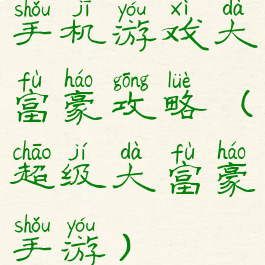 shǒu jī yóu xì dà
手机游戏大
fù háo gōng lüè
富豪攻略（
chāo jí dà fù háo
超级大富豪
shǒu yóu
手游）